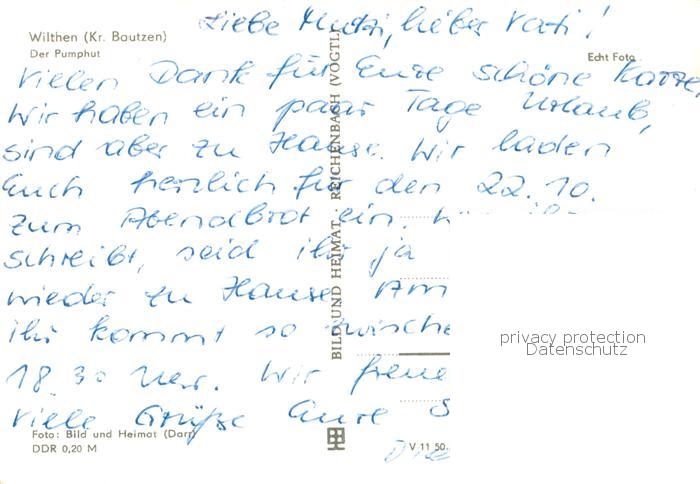 Liebe Mutti, lieber Vati!
Wilthen (Kr. Bautzen)
Der Pumphut
Echt Foto
Vielen Dank für Eure schöne Karte,
Wir haben ein paar Tage Urlaub,
sind aber zu Hause. Wir laden
Euch herzlich für den 22.10.
zum Abendbrot ein.
schreibt, seid ihr ja
wieder zu Hause. Am
ihr kommt so zwische
18.30 Uhr. Wir freue
viele Grüße Eure S
BILD UND HEIMAT · REICHENBACH (VOGTL)
privacy protection
Datenschutz
Foto: Bild und Heimat (Darr)
DDR 0,20 M
V 11 50